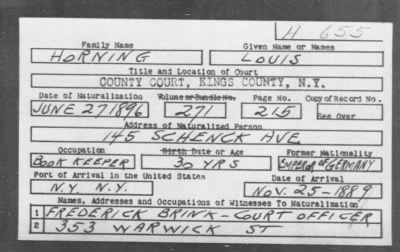 H 655
Family Name Given Name or Names
HORNING LOUIS
Title and Location of Court
COUNTY COURT, KINGS COUNTY, N.Y.
Date of Naturalization Volume or Bundle No. Page No. Copy of Record No.
JUNE 27 1896 271 215 See Over
Address of Naturalized Person
145 SCHENCK AVE.
Occupation Birth Date or Age Former Nationality
BOOK KEEPER 30 YRS EMPEROR OF GERMANY
Port of Arrival in the United States Date of Arrival
N.Y. N.Y. NOV. 25-1889
Names, Addresses and Occupations of Witnesses To Naturalization
1 FREDERICK BRINK-COURT OFFICER
2 353 WARWICK ST